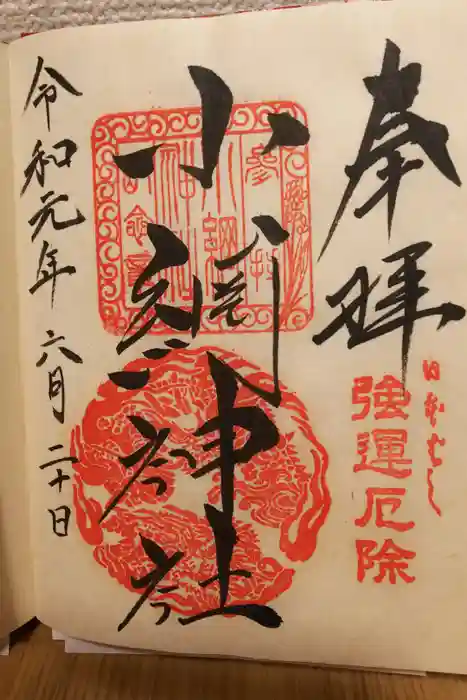 奉拝
日本むし
強運厄除
小網神社
令和元年六月二十日